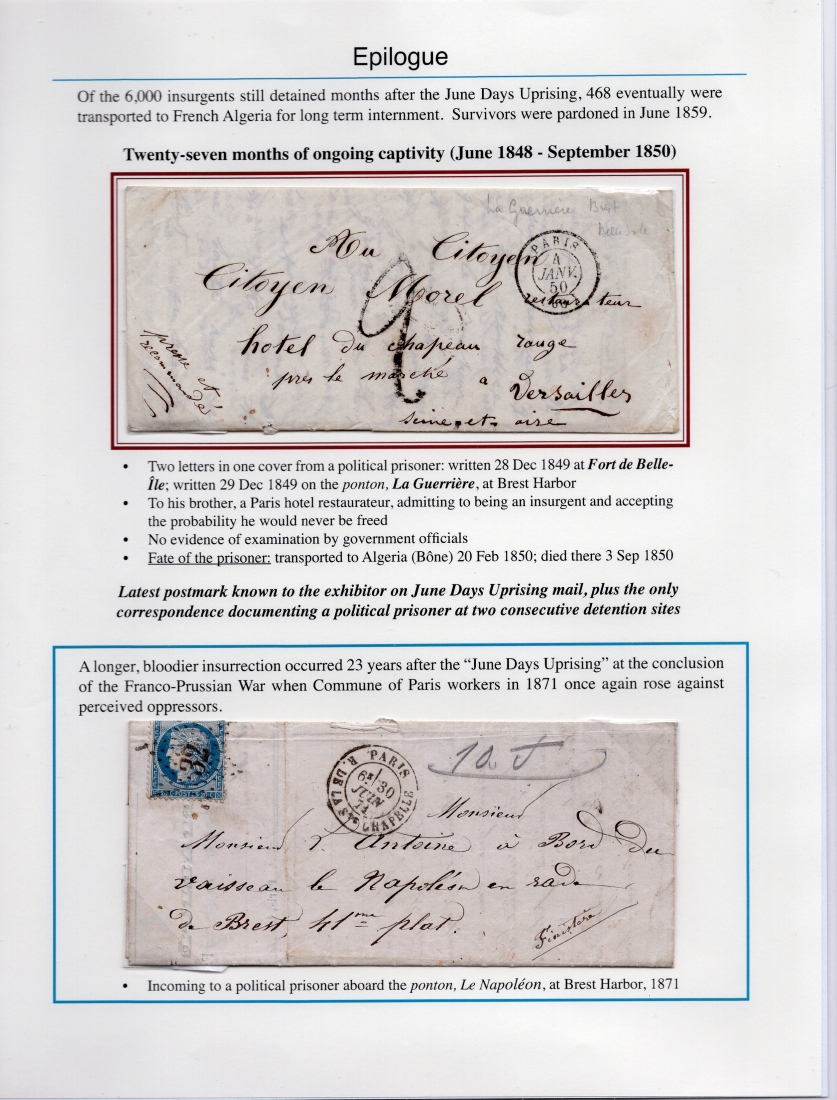 Epilogue
Of the 6,000 insurgents still detained months after the June Days Uprising, 468 eventually were
transported to French Algeria for long term internment.  Survivors were pardoned in June 1859.
Twenty-seven months of ongoing captivity (June 1848 - September 1850)
La Guerriere Brest
Belle Isle
Au Citoyen
PARIS
4
JANV.
50
Citoyen Morel restaurateur
hotel du chapeau rouge
près le marché a Versailles
Seine et oise
presse et
recommandé
• Two letters in one cover from a political prisoner: written 28 Dec 1849 at Fort de Belle-
Île; written 29 Dec 1849 on the ponton, La Guerrière, at Brest Harbor
• To his brother, a Paris hotel restaurateur, admitting to being an insurgent and accepting
the probability he would never be freed
• No evidence of examination by government officials
• Fate of the prisoner: transported to Algeria (Bône) 20 Feb 1850; died there 3 Sep 1850
Latest postmark known to the exhibitor on June Days Uprising mail, plus the only
correspondence documenting a political prisoner at two consecutive detention sites
A longer, bloodier insurrection occurred 23 years after the “June Days Uprising” at the conclusion
of the Franco-Prussian War when Commune of Paris workers in 1871 once again rose against
perceived oppressors.
32
PARIS
6E/ 30
JUIN
71
R. DE LA Ste CHAPELLE
Monsieur
Monsieur Antoine à Bord du
vaisseau le Napoléon en rade
de Brest, 41me plat.
Finistère
• Incoming to a political prisoner aboard the ponton, Le Napoléon, at Brest Harbor, 1871